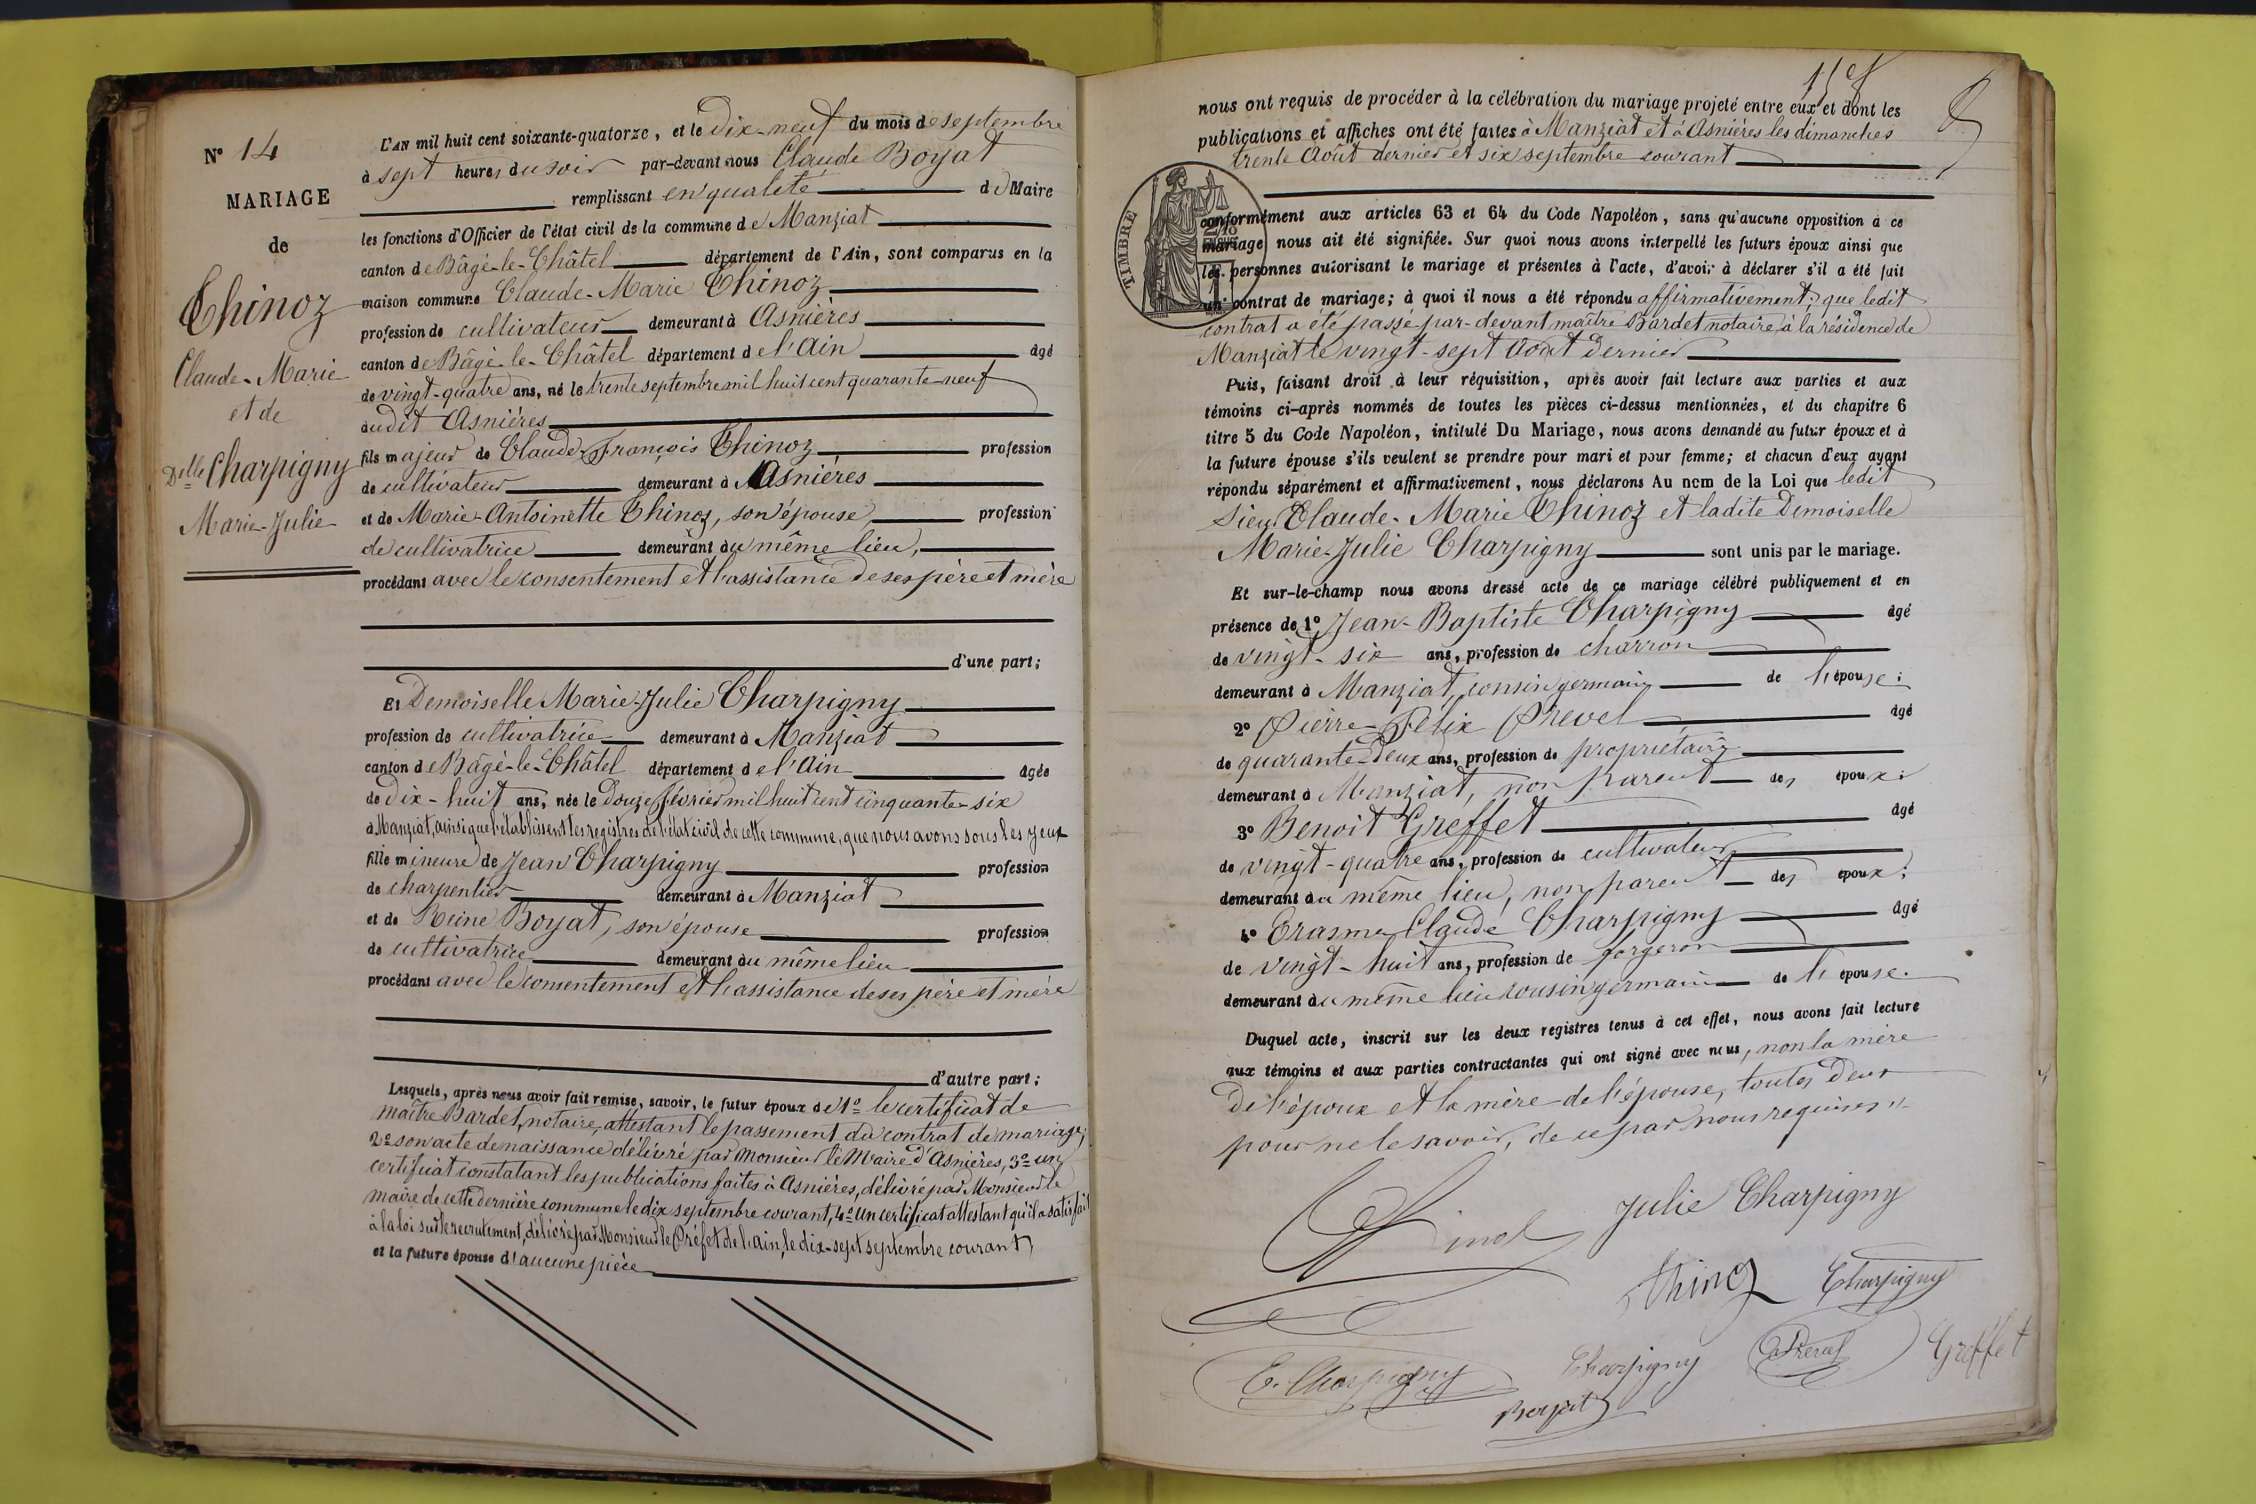 N° 14
MARIAGE
de
Thinoz
Claude-Marie
et de
Delle Charpigny
Marie-Julie
L'AN mil huit cent soixante-quatorze, et le dix-neuf du mois de septembre
à sept heures du soir par-devant nous Claude Boyat
remplissant en qualité de Maire
les fonctions d'Officier de l'état civil de la commune de Manziat
canton de Bâgé-le-Châtel département de l'Ain, sont comparus en la
maison commune Claude-Marie Thinoz
profession de cultivateur demeurant à Asnières
canton de Bâgé-le-Châtel département de l'Ain âgé
de vingt-quatre ans, né le trente septembre mil huit cent quarante-neuf
audit Asnières
fils majeur de Claude François Thinoz profession
de cultivateur demeurant à Asnières
et de Marie-Antoinette Thinoz, son épouse, profession
de cultivatrice demeurant au même lieu,
procédant avec le consentement et l'assistance de ses père et mère
d'une part;
Et Demoiselle Marie-Julie Charpigny
profession de cultivatrice demeurant à Manziat
canton de Bâgé-le-Châtel département de l'Ain âgée
de dix-huit ans, née le douze février mil huit cent cinquante-six
à Manziat, ainsi que l'établissent les registres de l'état civil de cette commune, que nous avons sous les yeux
fille mineure de Jean Charpigny profession
de charpentier demeurant à Manziat
et de Reine Boyat, son épouse profession
de cultivatrice demeurant au même lieu
procédant avec le consentement et l'assistance de ses père et mère
d'autre part;
Lesquels, après nous avoir fait remise, savoir, le futur époux de 1° le certificat de
maître Bardet, notaire, attestant le passement du contrat de mariage;
2° son acte de naissance délivré par Monsieur le Maire d'Asnières, 3° un
certificat constatant les publications faites à Asnières, délivré par Monsieur le
maire de cette dernière commune le dix septembre courant, 4° un certificat attestant qu'il a satisfait
à la loi sur le recrutement, délivré par Monsieur le Préfet de l'Ain, le dix-sept septembre courant,
et la future épouse d'aucune pièce
nous ont requis de procéder à la célébration du mariage projeté entre eux et dont les
publications et affiches ont été faites à Manziat et à Asnières les dimanches
trente Août dernier et six septembre courant
TIMBRE
conformément aux articles 63 et 64 du Code Napoléon, sans qu'aucune opposition à ce
mariage nous ait été signifiée. Sur quoi nous avons interpellé les futurs époux ainsi que
les personnes autorisant le mariage et présentes à l'acte, d'avoir à déclarer s'il a été fait
un contrat de mariage; à quoi il nous a été répondu affirmativement; que ledit
contrat a été passé par-devant maître Bardet notaire à la résidence de
Manziat le vingt-sept Août dernier
Puis, faisant droit à leur réquisition, après avoir fait lecture aux parties et aux
témoins ci-après nommés de toutes les pièces ci-dessus mentionnées, et du chapitre 6
titre 5 du Code Napoléon, intitulé Du Mariage, nous avons demandé au futur époux et à
la future épouse s'ils veulent se prendre pour mari et pour femme; et chacun d'eux ayant
répondu séparément et affirmativement, nous déclarons Au nom de la Loi que ledit
Sieur Claude-Marie Thinoz et ladite Demoiselle
Marie-Julie Charpigny sont unis par le mariage.
Et sur-le-champ nous avons dressé acte de ce mariage célébré publiquement et en
présence de 1° Jean-Baptiste Charpigny âgé
de vingt-six ans, profession de charron
demeurant à Manziat, cousin germain de l'épouse;
2° Pierre-Félix Prevel âgé
de quarante-deux ans, profession de propriétaire
demeurant à Manziat, non parent des époux;
3° Benoit Greffet âgé
de vingt-quatre ans, profession de cultivateur
demeurant au même lieu, non parent des époux;
4° Erasme Claude Charpigny âgé
de vingt-huit ans, profession de forgeron
demeurant au même lieu cousin germain de l'épouse.
Duquel acte, inscrit sur les deux registres tenus à cet effet, nous avons fait lecture
aux témoins et aux parties contractantes qui ont signé avec nous, non la mère
de l'époux et la mère de l'épouse, toutes deux
pour ne le savoir, de ce par nous requises
Julie Charpigny
Thinoz Charpigny
E. Charpigny Charpigny Prevel Greffet
Boyat